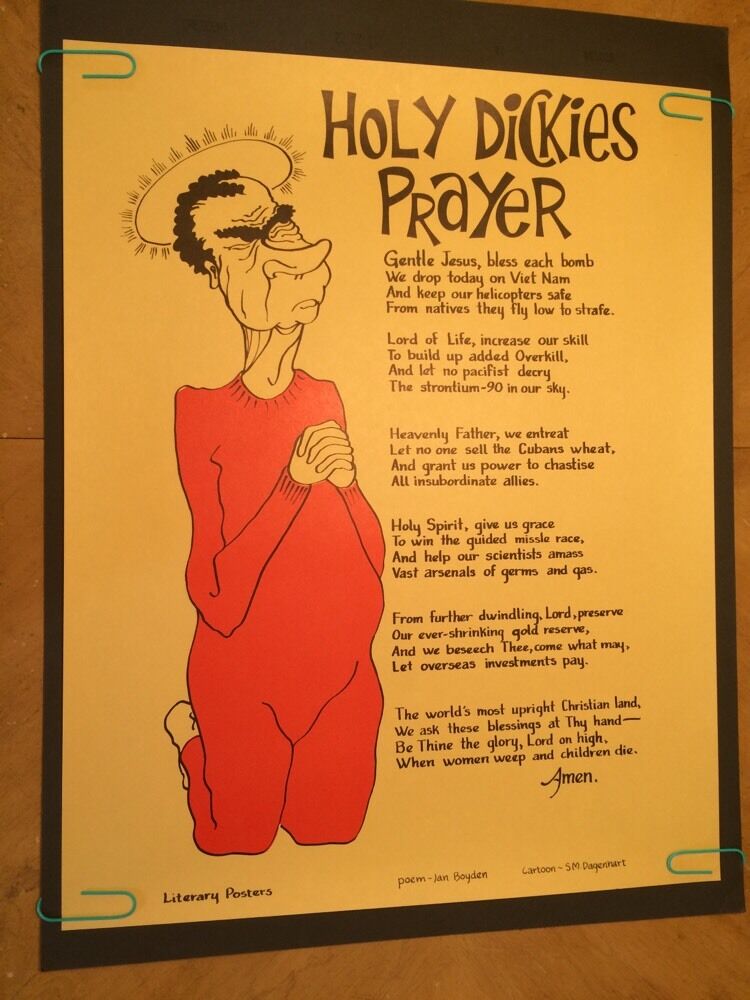 HOLY DiCKiES
PRAYER
Gentle Jesus, bless each bomb
We drop today on Viet Nam
And keep our helicopters safe
From natives they fly low to strafe.
Lord of Life, increase our skill
To build up added Overkill,
And let no pacifist decry
The strontium-90 in our sky.
Heavenly Father, we entreat
Let no one sell the Cubans wheat,
And grant us power to chastise
All insubordinate allies.
Holy Spirit, give us grace
To win the guided missle race,
And help our scientists amass
Vast arsenals of germs and gas.
From further dwindling, Lord, preserve
Our ever-shrinking gold reserve,
And we beseech Thee, come what may,
Let overseas investments pay.
The world's most upright Christian land,
We ask these blessings at Thy hand—
Be Thine the glory, Lord on high,
When women weep and children die.
Amen.
poem-Jan Boyden
Cartoon~S.M. Dagenhart
Literary Posters